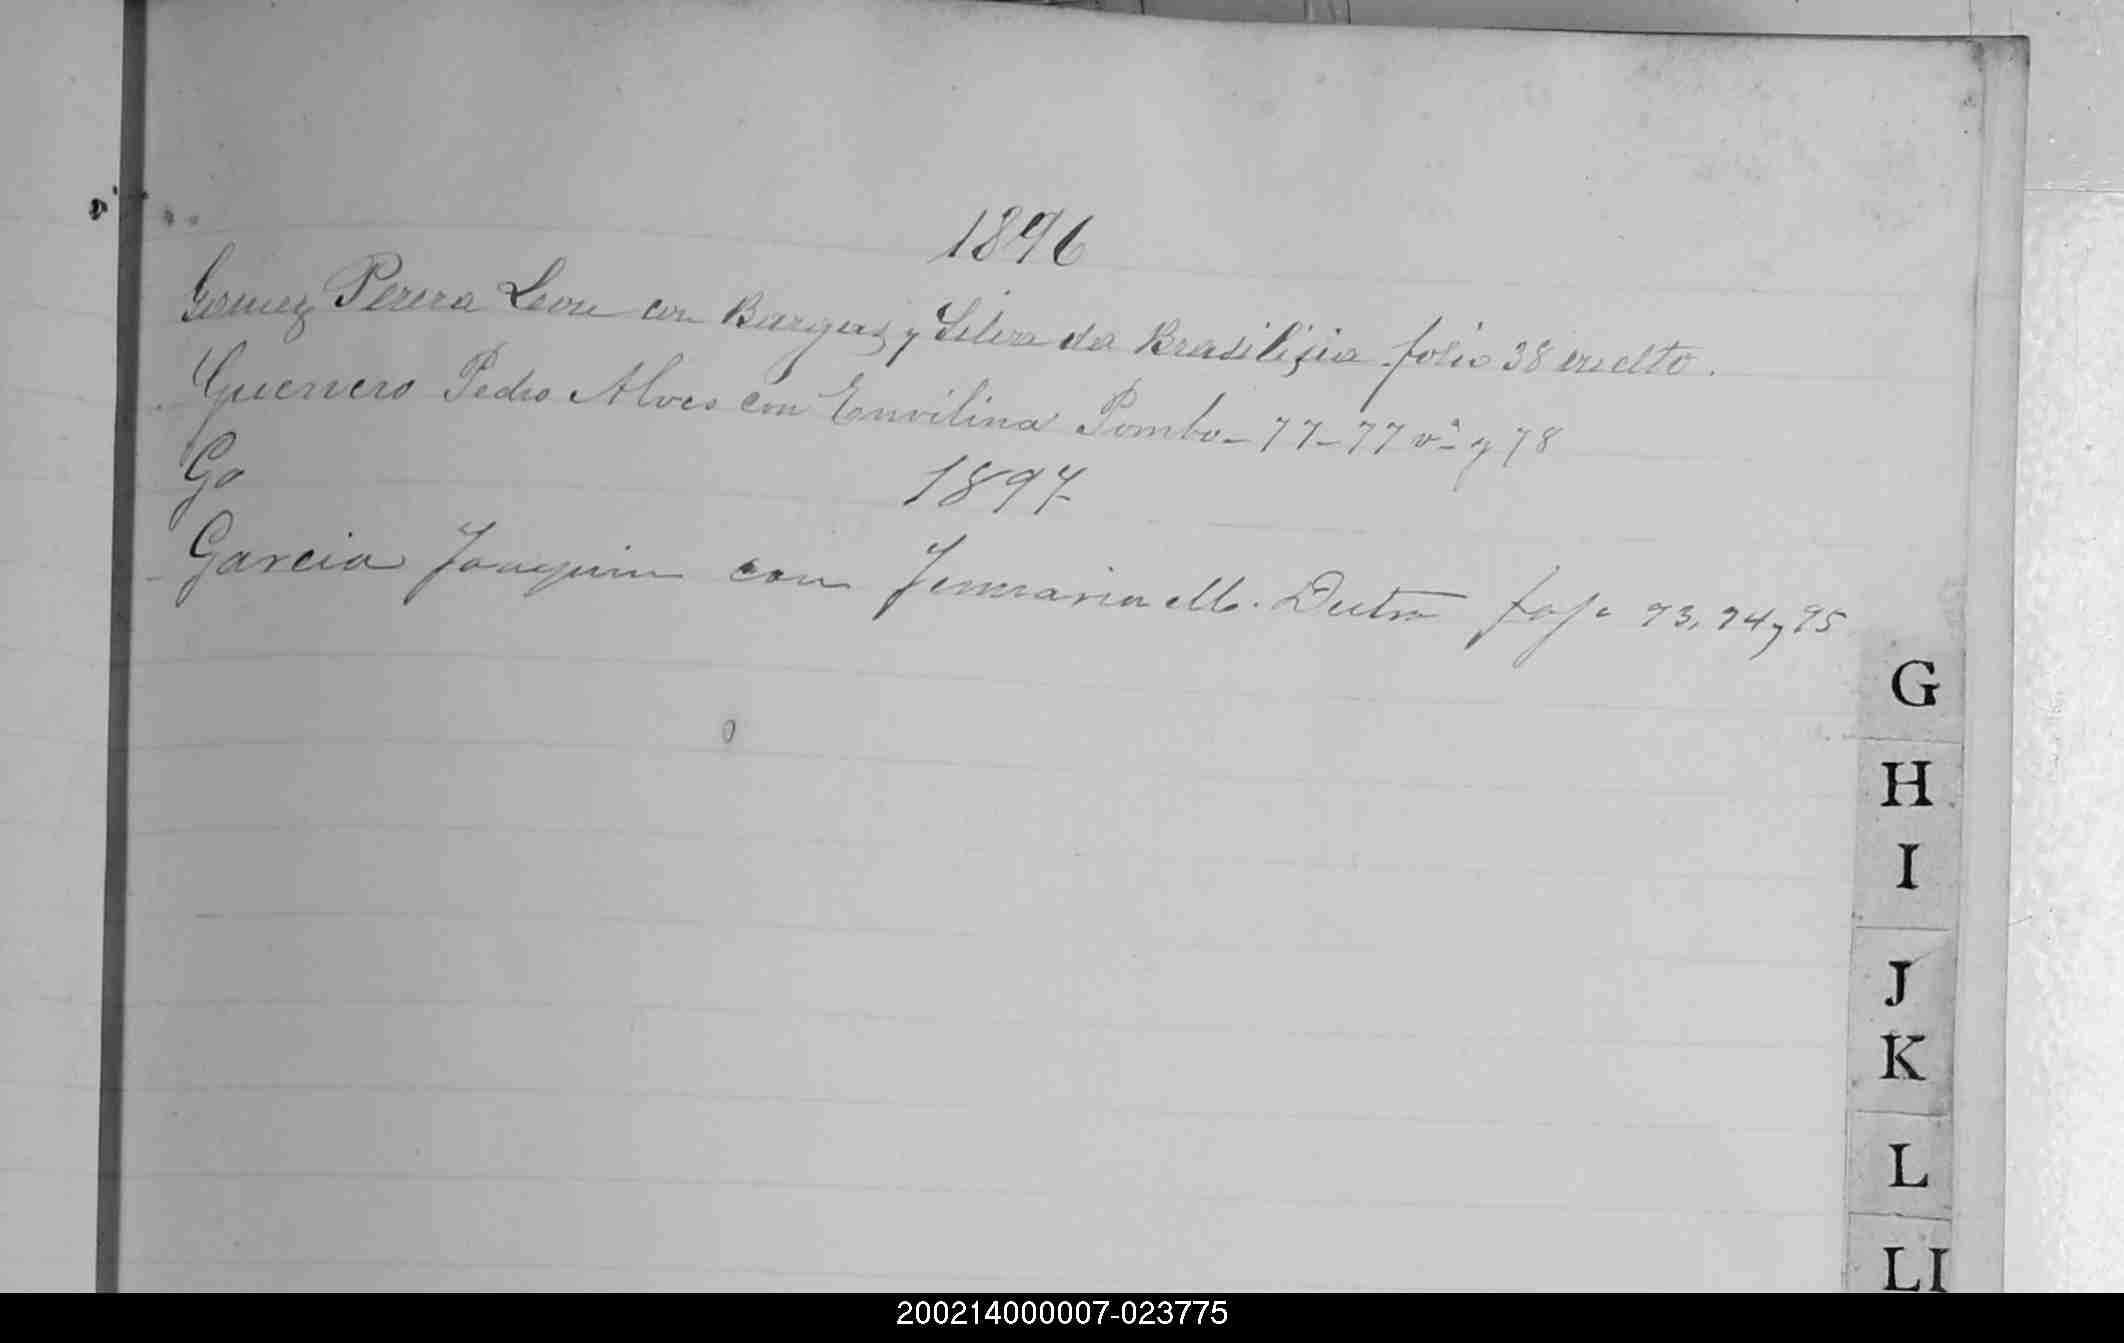 1896
Gomez Perera Leon con Bargas y Silva da Brasilisia folio 38 vuelto.
Guerrero Pedro Alves con Envilina Pombo - 77 - 77 vª y 78
Go
1897
Garcia Joaquin con M. Dutra 93, 94 y 95
G
H
I
J
K
L
LI
200214000007-023775